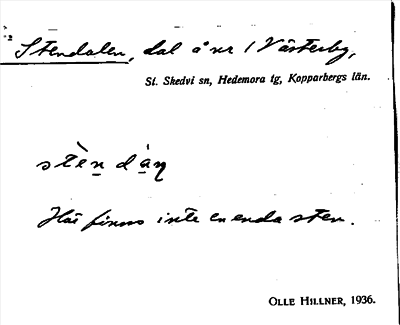 Stendalen, dal å nr 1 Västerby,
St. Skedvi sn, Hedemora tg, Kopparbergs län.
stèn dàn
Här finns inte en enda sten.
OLLE HILLNER, 1936.